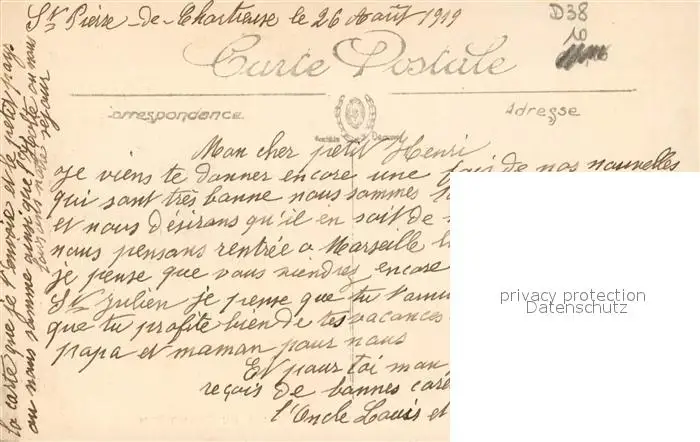 St Pierre-de-Chartreuse le 26 Août 1919
D38
10
Carte Postale
Correspondance
Adresse
Mon cher petit Henri
Je viens te donner encore une fois de nos nouvelles
qui sont très bonne nous sommes
et nous désirons qu'il en soit de
nous pensons rentrée a Marseille
je pense que vous viendrez encore
St Julien je pense que tu
que tu profite bien de tes vacances
papa et maman pour nous
Et pour toi mon
reçois de bonnes
l'Oncle Louis et
la carte que je t'envoie et le petit pays
ou nous somme ainsi que l'
faisons notre séjour
privacy protection
Datenschutz